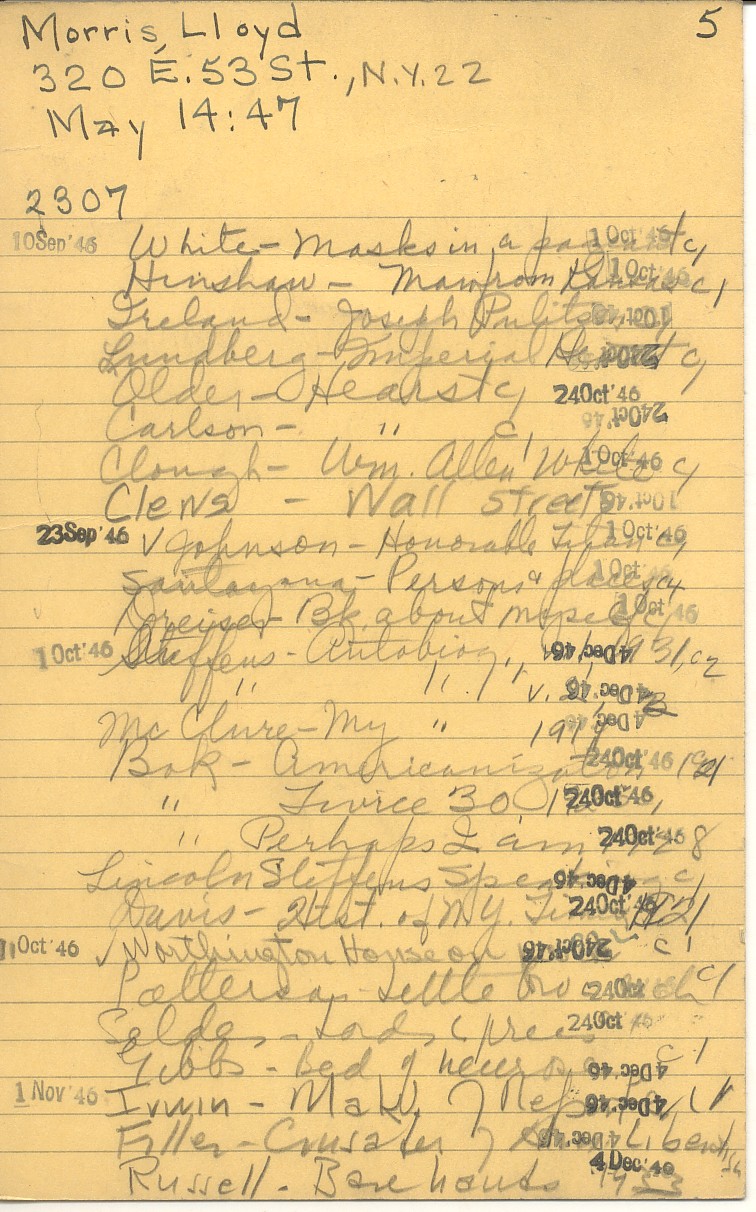 Morris, Lloyd 5
320 E. 53 St., N.Y. 22
May 14:47
2307
10 Sep '46 White - Masks in a pageant cy 1 Oct '46
Hinshaw - Man from Kansas c1 1 Oct '46
Ireland - Joseph Pulitzer 1 Oct '46
Lundberg - Imperial Hearst cy 24 Oct '46
Older - Hearst cy 24 Oct '46
Carlson - " c1 24 Oct '46
Clough - Wm. Allen White cy 1 Oct '46
Clews - Wall Street 1 Oct '46
23 Sep '46 V Johnson - Honorable Titan cy 1 Oct '46
Santayana - Persons & places c4 1 Oct '46
Dreiser - Bk. about myself 1 Oct '46
1 Oct '46 Steffens - Autobiog., 1931, c2 4 Dec '46
" " v. 2 4 Dec '46
McClure - My " 1914 4 Dec '46
Bok - Americanization 1921 24 Oct '46
" Twice 30 24 Oct '46
" Perhaps I am 1928 24 Oct '46
Lincoln Steffens Speaking c1 4 Dec '46
Davis - Hist. of N.Y. Times 1921 24 Oct '46
11 Oct '46 √ Worthington House on c1 24 Oct '46
Patterson - Little c1 24 Oct '46
Seldes - Lords of press 24 Oct '46
Gibbs - Bed of neuroses c1 4 Dec '46
1 Nov '46 Irwin - Mak. of 4 Dec '46
Filler - Crusaders of Am. Liberalism 4 Dec '46
Russell - Bare hands 1933 4 Dec '46